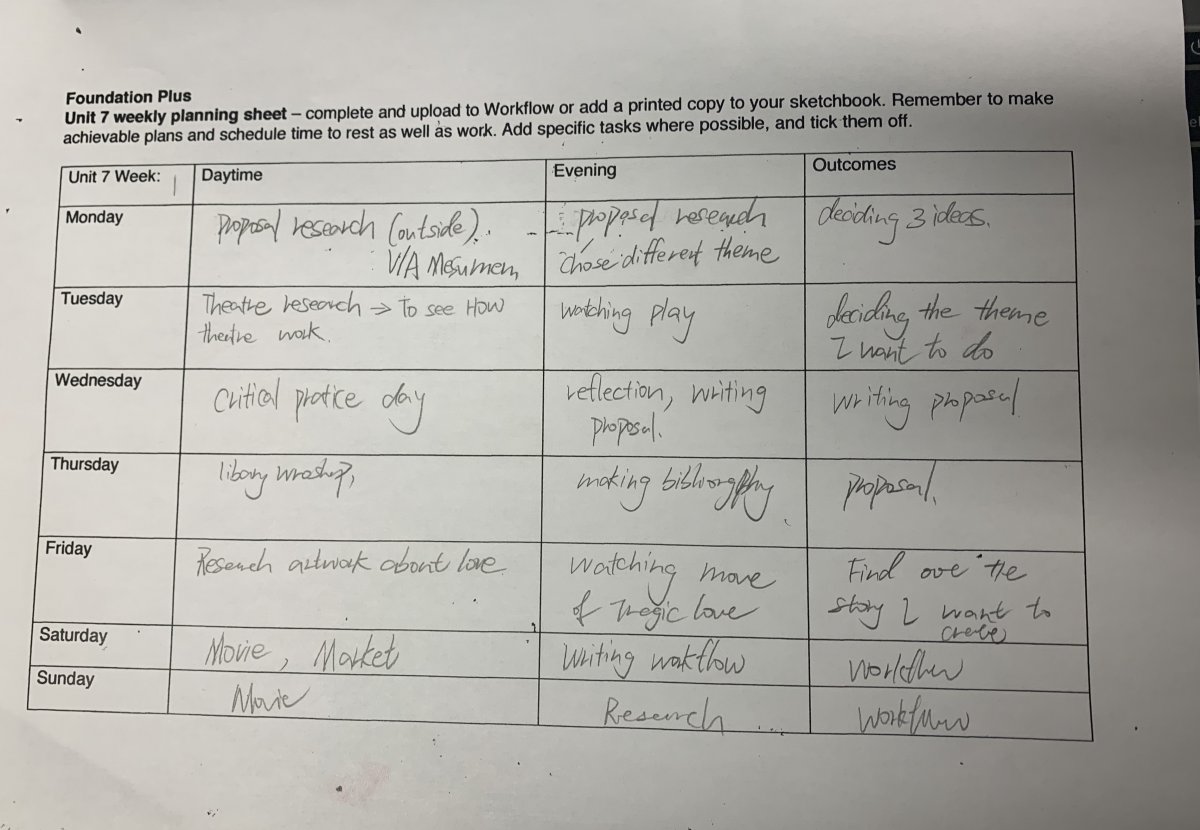 Foundation Plus
Unit 7 weekly planning sheet – complete and upload to Workflow or add a printed copy to your sketchbook. Remember to make
achievable plans and schedule time to rest as well as work. Add specific tasks where possible, and tick them off.
Unit 7 Week: 1 Daytime Evening Outcomes
Monday proposal research (outside). proposal research deciding 3 ideas.
V/A Mesumem chose different theme
Tuesday Theatre research → To see How watching play deciding the theme
theatre work. I want to do
Wednesday Critical pratice day reflection, writing writing proposal
proposal.
Thursday libary making proposal.
Friday Research artwork about love. watching move Find ove the
of Tregic love story I want to
create
Saturday Movie, Market Writing workflow Workflow
Sunday Movie Research ... Workflow